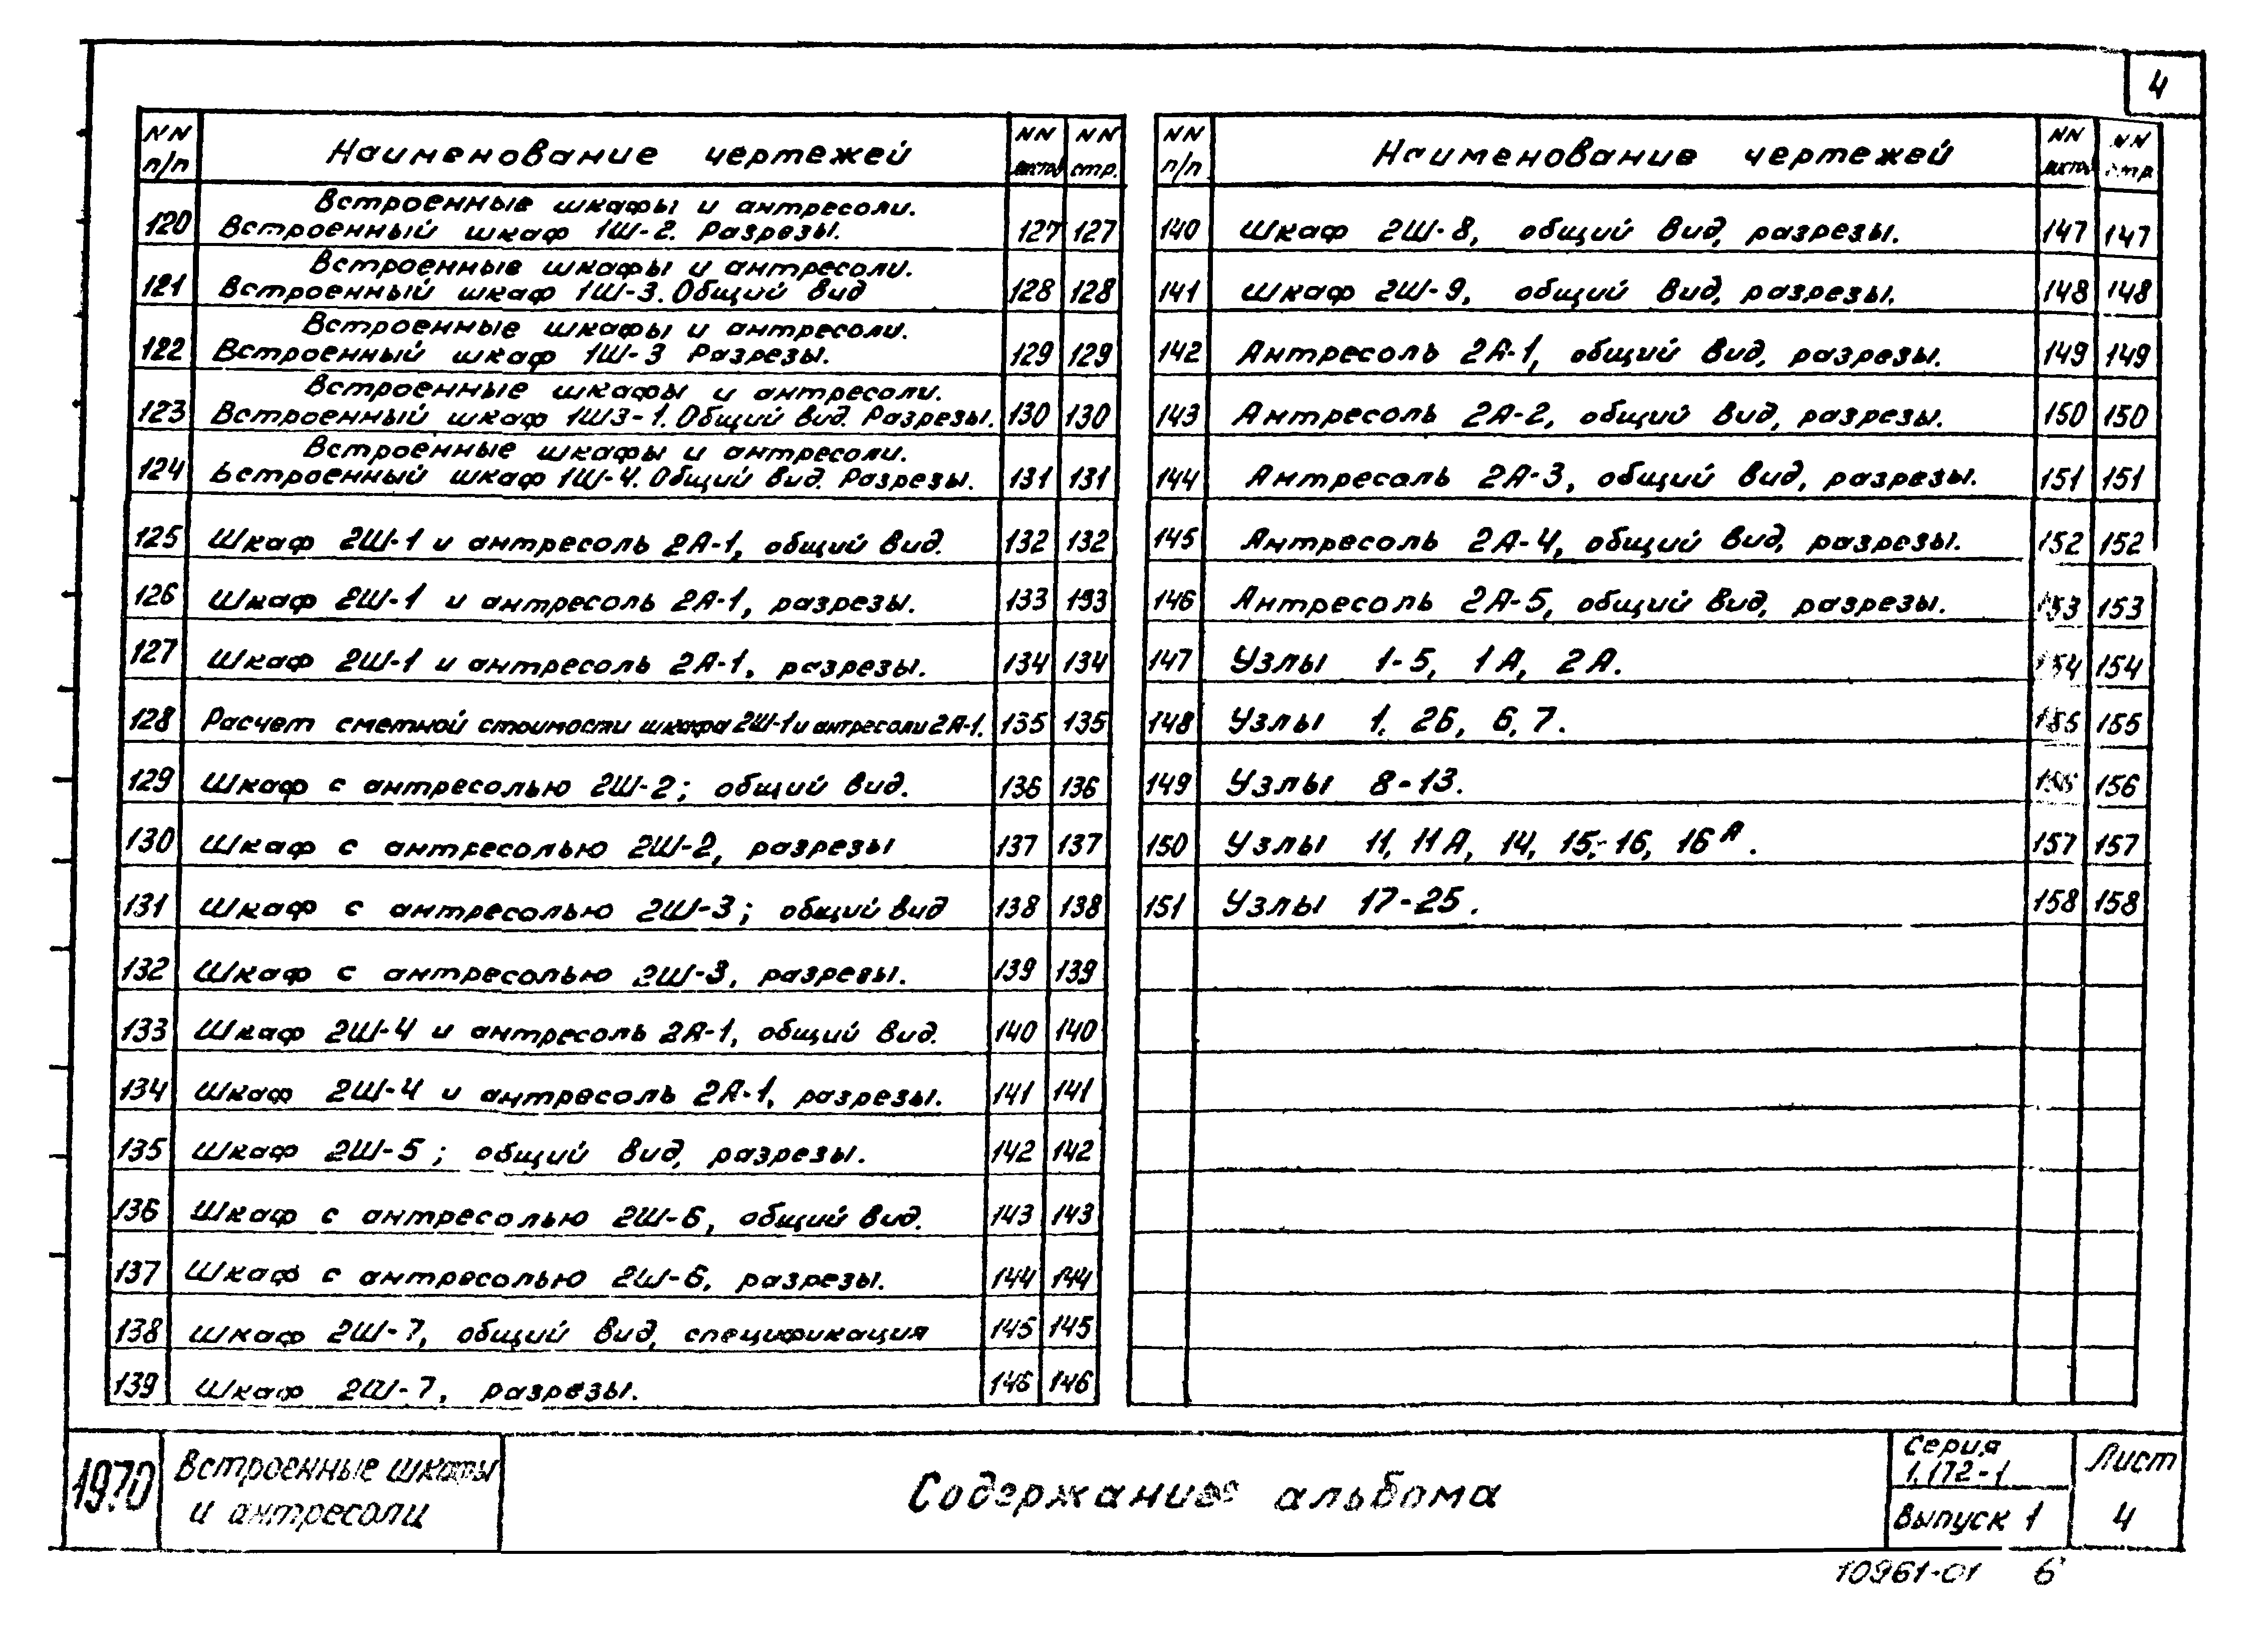 4
NN п/п Наименование чертежей NN листов NN стр.
Встроенные шкафы и антресоли.
120 Встроенный шкаф 1Ш-2. Разрезы. 127 127
Встроенные шкафы и антресоли.
121 Встроенный шкаф 1Ш-3. Общий вид 128 128
Встроенные шкафы и антресоли.
122 Встроенный шкаф 1Ш-3 Разрезы. 129 129
Встроенные шкафы и антресоли.
123 Встроенный шкаф 1Ш3-1. Общий вид. Разрезы. 130 130
Встроенные шкафы и антресоли.
124 Встроенный шкаф 1Ш-4. Общий вид. Разрезы. 131 131
125 Шкаф 2Ш-1 и антресоль 2А-1, общий вид. 132 132
126 Шкаф 2Ш-1 и антресоль 2А-1, разрезы. 133 133
127 Шкаф 2Ш-1 и антресоль 2А-1, разрезы. 134 134
128 Расчет сметной стоимости шкафа 2Ш-1 и антресоли 2А-1. 135 135
129 Шкаф с антресолью 2Ш-2; общий вид. 136 136
130 Шкаф с антресолью 2Ш-2, разрезы 137 137
131 Шкаф с антресолью 2Ш-3; общий вид 138 138
132 Шкаф с антресолью 2Ш-3, разрезы. 139 139
133 Шкаф 2Ш-4 и антресоль 2А-1, общий вид. 140 140
134 Шкаф 2Ш-4 и антресоль 2А-1, разрезы. 141 141
135 Шкаф 2Ш-5; общий вид, разрезы. 142 142
136 Шкаф с антресолью 2Ш-6, общий вид. 143 143
137 Шкаф с антресолью 2Ш-6, разрезы. 144 144
138 Шкаф 2Ш-7, общий вид, спецификация 145 145
139 Шкаф 2Ш-7, разрезы. 146 146
NN п/п Наименование чертежей NN листов NN стр.
140 Шкаф 2Ш-8, общий вид, разрезы. 147 147
141 Шкаф 2Ш-9, общий вид, разрезы. 148 148
142 Антресоль 2А-1, общий вид, разрезы. 149 149
143 Антресоль 2А-2, общий вид, разрезы. 150 150
144 Антресоль 2А-3, общий вид, разрезы. 151 151
145 Антресоль 2А-4, общий вид, разрезы. 152 152
146 Антресоль 2А-5, общий вид, разрезы. 153 153
147 Узлы 1-5, 1А, 2А. 154 154
148 Узлы 1, 2Б, 6, 7. 155 155
149 Узлы 8-13. 156 156
150 Узлы 11, 11А, 14, 15,-16, 16А. 157 157
151 Узлы 17-25. 158 158
1970
Встроенные шкафы
и антресоли
Содержание альбома
Серия
1.172-1
Выпуск 1
Лист
4
10961-01 6